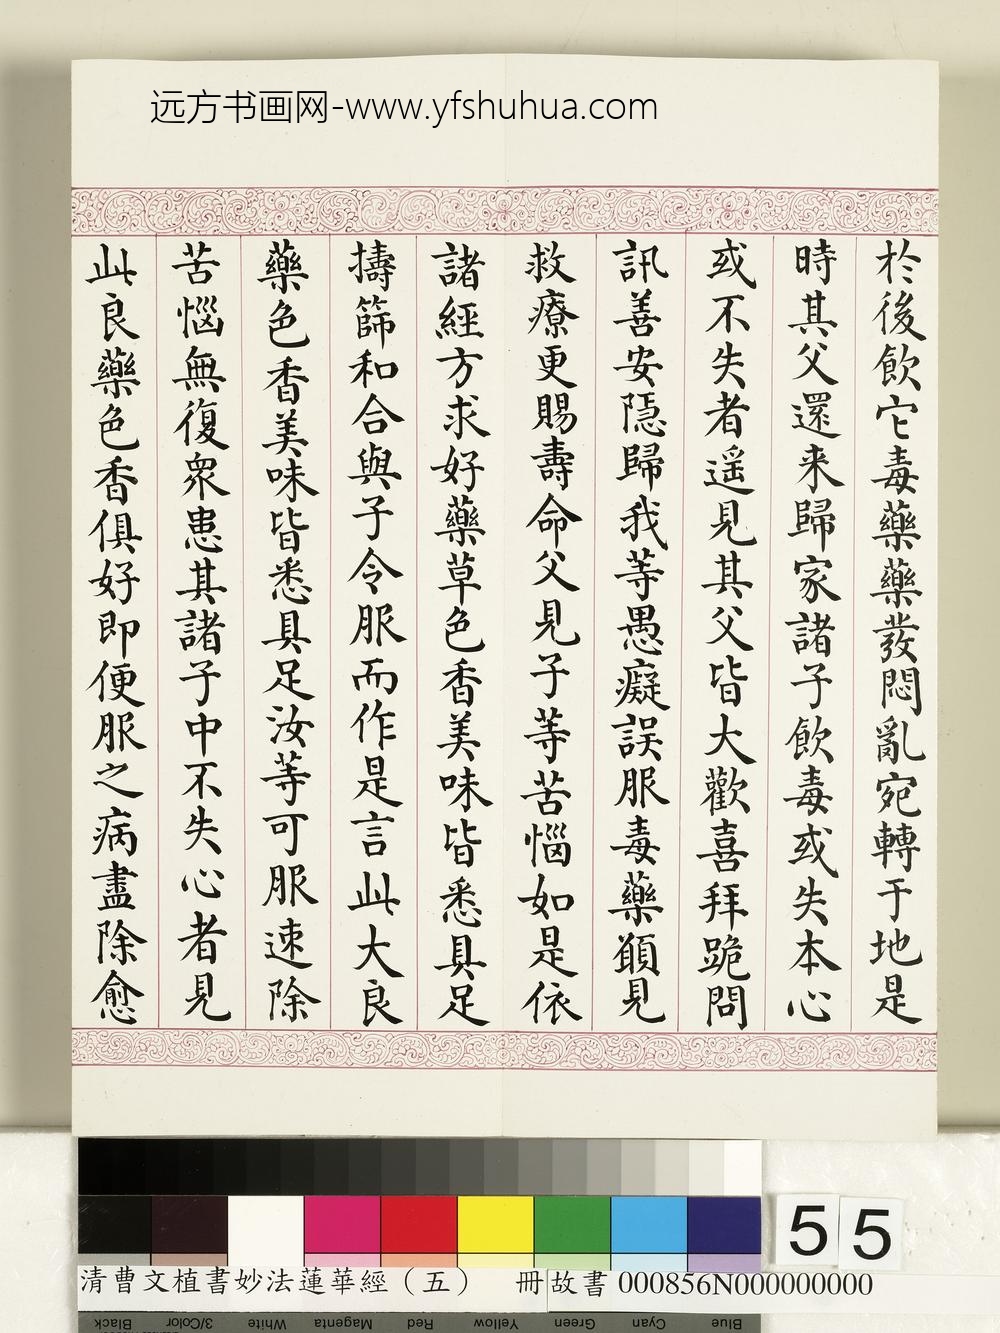 远方书画网-www.yfshuhua.com
於後飲它毒藥藥發悶亂宛轉于地是
時其父還来歸家諸子飲毒或失本心
或不失者遥見其父皆大歡喜拜跪問
訊善安隱歸我等愚癡誤服毒藥願見
救療更賜壽命父見子等苦惱如是依
諸經方求好藥草色香美味皆悉具足
擣篩和合與子令服而作是言此大良
藥色香美味皆悉具足汝等可服速除
苦惱無復眾患其諸子中不失心者見
此良藥色香俱好即便服之病盡除愈
55
清曹文植書妙法蓮華經（五） 冊 故書 000856N000000000
Black 3/Color White Magenta Red Yellow Green Cyan Blue